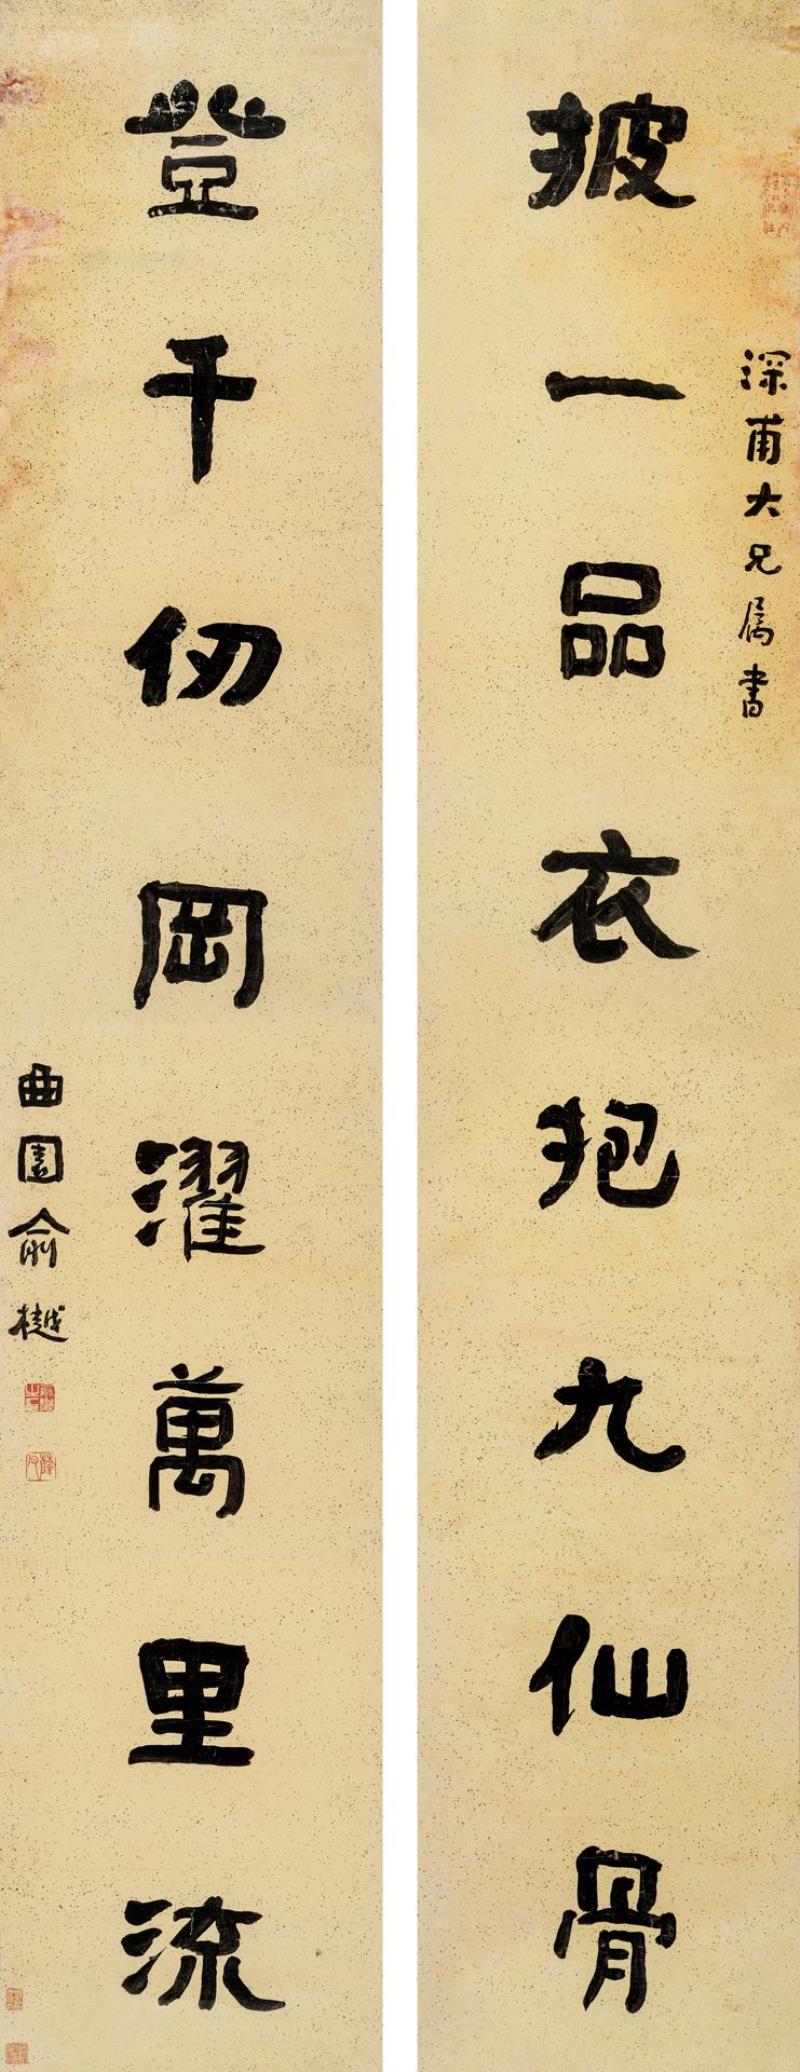 深甫大兄属書
披一品衣抱九仙骨
登千仞岡濯萬里流
曲園俞樾